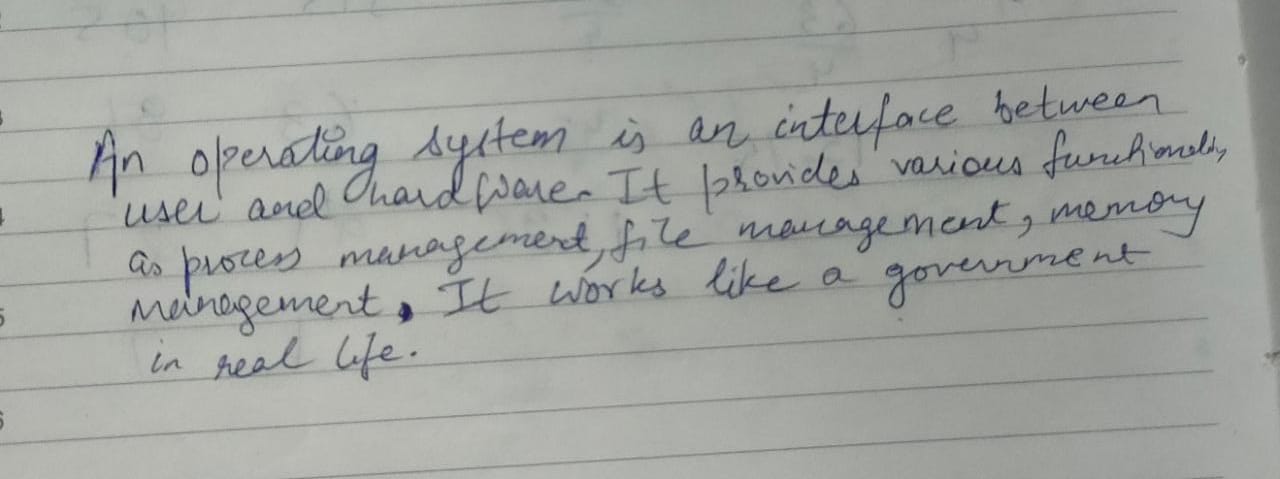 An operating system is an interface between
user and hardware. It provides various functionality
as process management, file management, memory
management. It works like a government
in real life.